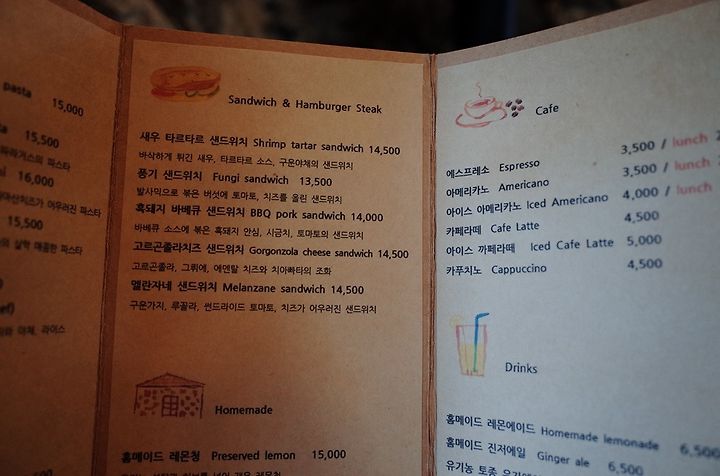 pasta 15,000
15,500
16,000
15,500
Sandwich & Hamburger Steak
새우 타르타르 샌드위치 Shrimp tartar sandwich 14,500
바삭하게 튀긴 새우, 타르타르 소스, 구운야채의 샌드위치
풍기 샌드위치 Fungi sandwich 13,500
발사믹으로 볶은 버섯에 토마토, 치즈를 올린 샌드위치
흑돼지 바베큐 샌드위치 BBQ pork sandwich 14,000
바베큐 소스에 볶은 흑돼지 안심, 시금치, 토마토의 샌드위치
고르곤졸라치즈 샌드위치 Gorgonzola cheese sandwich 14,500
고르곤졸라, 그뤼에, 에멘탈 치즈와 치아빠타의 조화
멜란자네 샌드위치 Melanzane sandwich 14,500
구운가지, 루꼴라, 썬드라이드 토마토, 치즈가 어우러진 샌드위치
Homemade
홈메이드 레몬청 Preserved lemon 15,000
Cafe
에스프레소 Espresso 3,500 / lunch
아메리카노 Americano 3,500 / lunch
아이스 아메리카노 Iced Americano 4,000 / lunch
카페라떼 Cafe Latte 4,500
아이스 까페라떼 Iced Cafe Latte 5,000
카푸치노 Cappuccino 4,500
Drinks
홈메이드 레몬에이드 Homemade lemonade 6,500
홈메이드 진저에일 Ginger ale 6,500
유기농 토종